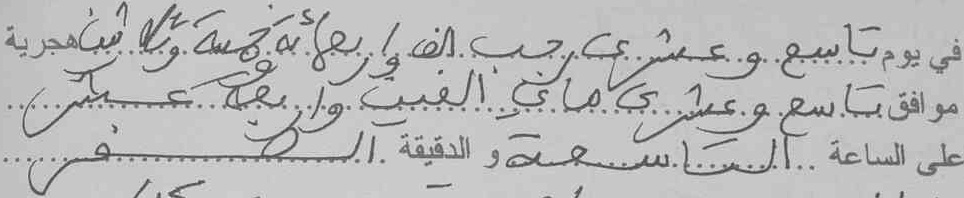 في يوم تاسع وعشري رجب الف واربعمائة وخمسة وثلاثين هجرية
موافق تاسع وعشري ماي الفين واربعة عشر
على الساعة التاسعة و الدقيقة الصفر